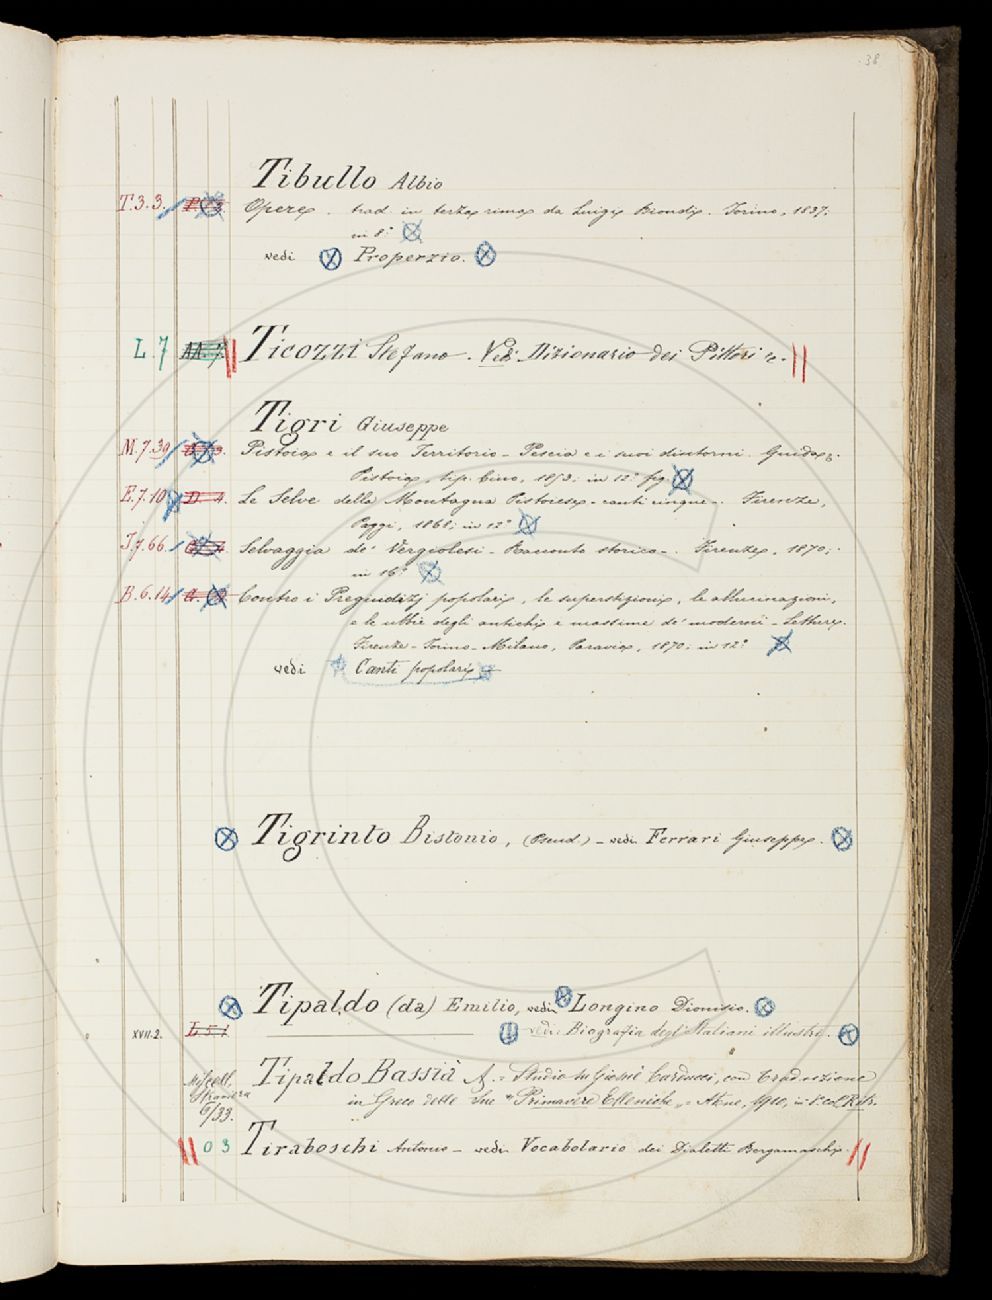 38
Tibullo Albio
T.3.3. Opere. trad. in terza rima da Luigi Biondi. Torino, 1837;
in 8.°
vedi Properzio.
L.7 AA.7. Ticozzi Stefano. Ved. Dizionario dei Pittori
Tigri Giuseppe
M.7.39 Pistoia e il suo Territorio - Pescia e i suoi dintorni. Guida
Pistoia, tip. Cino, 1853; in 12.° fig.
E.7.10 D. 4. Le Selve della Montagna Pistoiese - canti cinque -. Firenze,
Paggi, 1868; in 12.°
I.7.66. Selvaggia de' Vergiolesi - Racconto storico -. Firenze, 1870;
in 16.°
B.6.14 Contro i Pregiudizj popolari, le superstizioni, le allucinazioni,
e le ubbie degli antichi e massime de' moderni - Lettere.
Firenze - Torino - Milano, Paravia, 1870; in 12.°
vedi Canti popolari
Tigrinto Bistonio, (Pseud.) - vedi Ferrari Giuseppe.
Tipaldo (da) Emilio, vedi Longino Dionisio.
XVII.2. L.5.1 vedi Biografia degl'Italiani illustri.
Miscell. Tipaldo Bassià A. = Studio su Giosuè Carducci, con traduzione
Straniera in Greco delle Sue "Primavere Elleniche" = Atene, 1910, in 8° col Ritr.
6/33.
O 3 Tiraboschi Antonio - vedi Vocabolario dei Dialetti Bergamaschi.